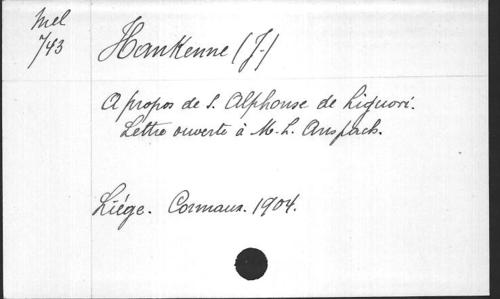 Mel
743
Hankenne (J.)
A propos de S. Alphonse de Liguori.
Lettre ouverte à M. L. Anspach.
Liége. Cormaux. 1904.